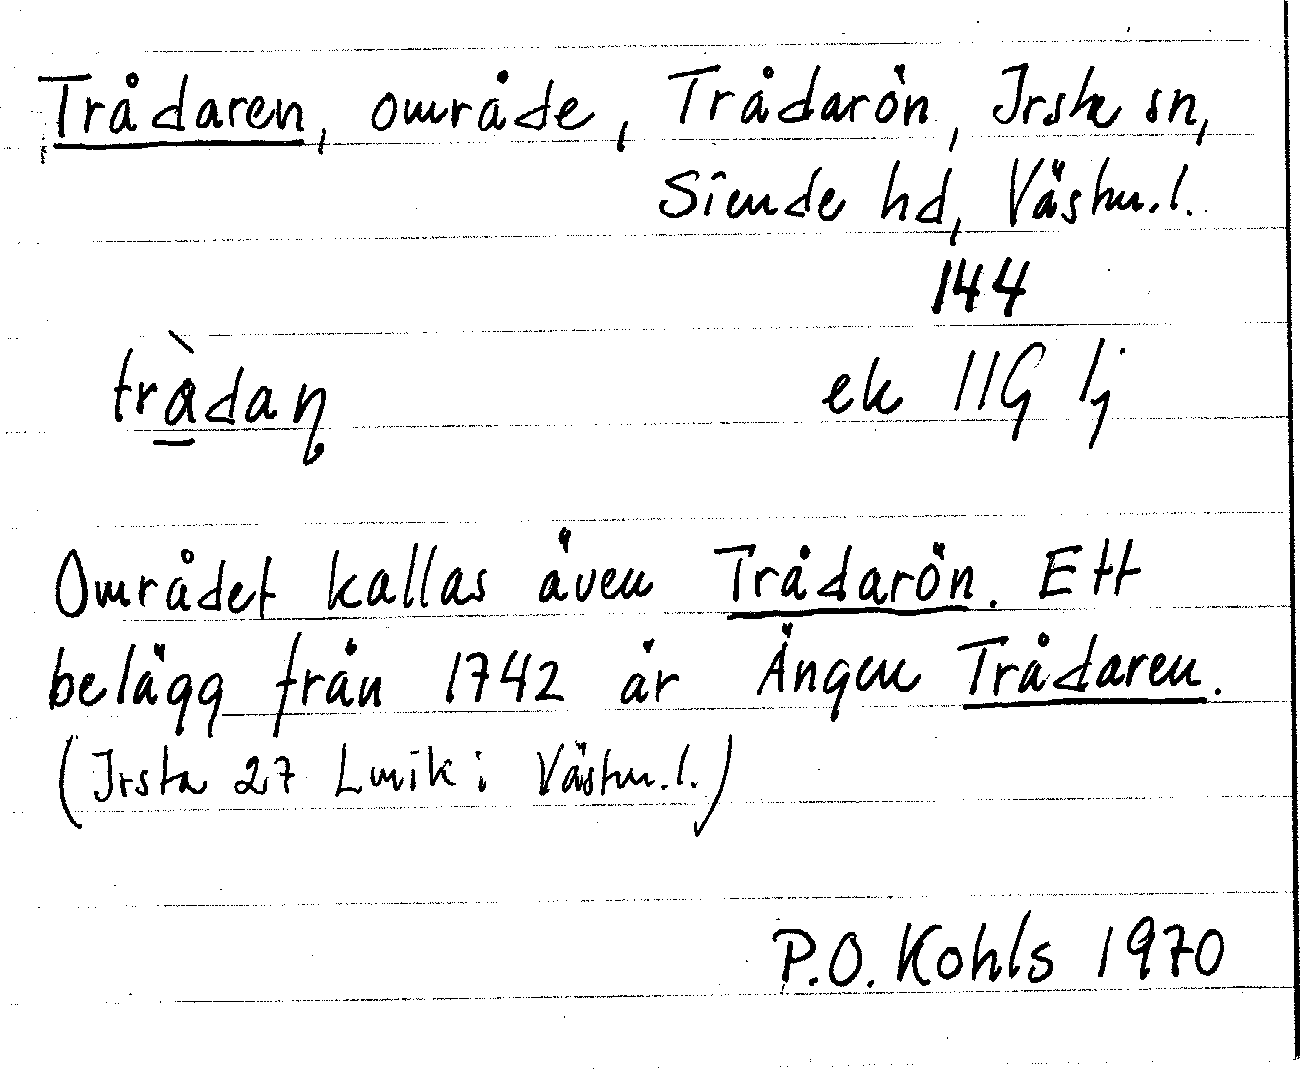 Trådaren, område, Trådarön, Irsta sn,
Siende hd, Västm.l.
144
tràdaņ ek 11G 1j
Området kallas även Trådarön. Ett
belägg från 1742 är Ängen Trådaren.
(Irsta 27 Lmik: Västm.l.)
P.O. Kohls 1970